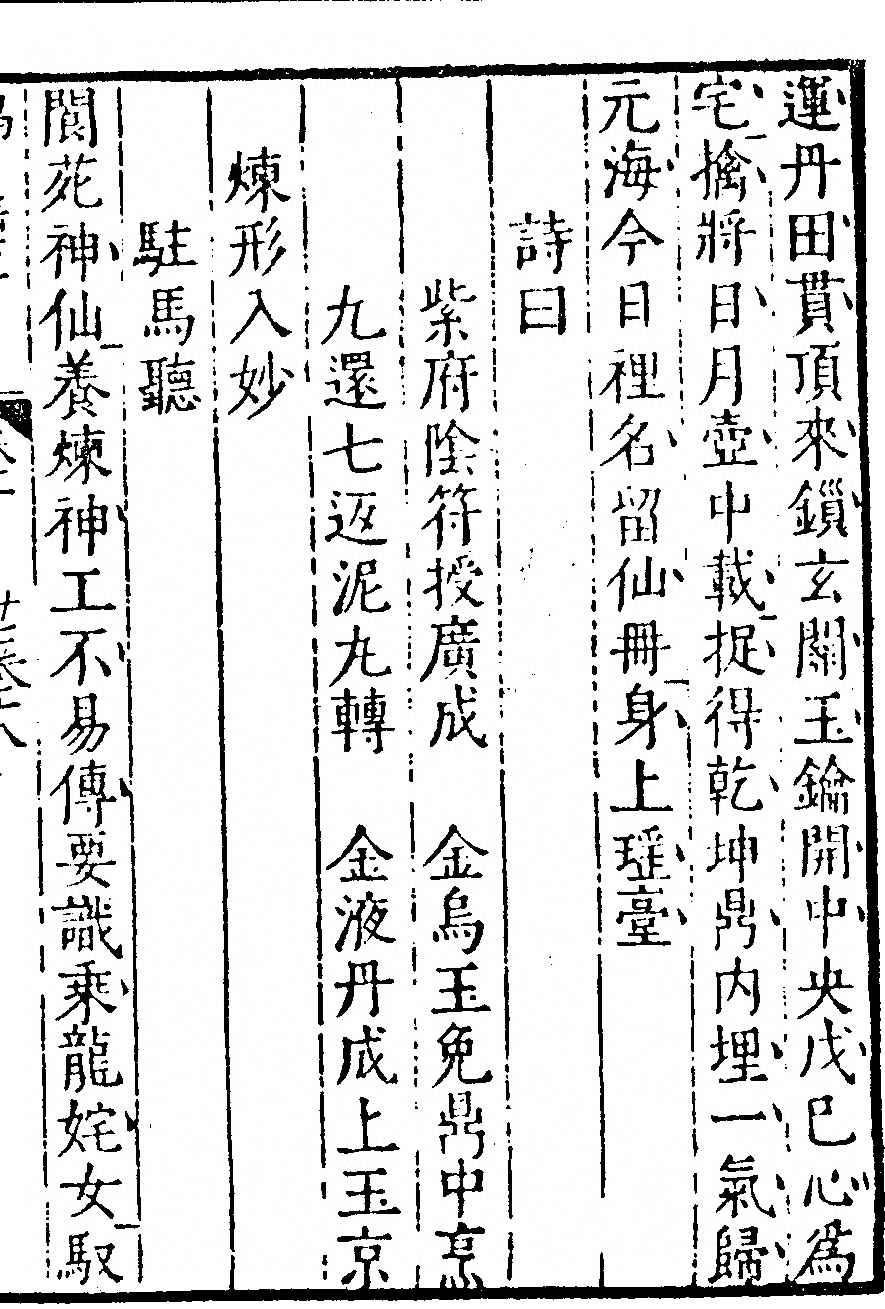 運丹田貫頂來鎖玄關玉鑰開中央戊巳心為
宅擒將日月壺中載捉得乾坤鼎内埋一氣歸
元海今日裡名留仙冊身上瑶臺
詩曰
紫府陰符授廣成　金烏玉兔鼎中烹
九還七返泥丸轉　金液丹成上玉京
煉形入妙
駐馬聽
閬苑神仙養煉神工不易傳要識乘龍姹女馭